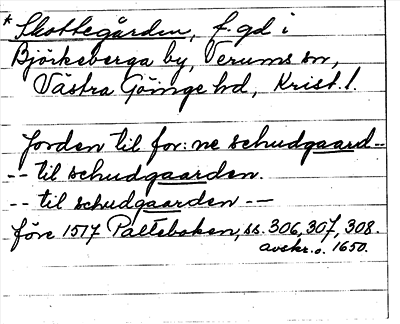 * Skottegården, f. gd i
Björkeberga by, Verums sn,
Västra Göinge hd, Krist. l.
Jorden til for: ne schudgaard --
-- til schudgaarden.
-- til schudgaarden --
före 1517 Palteboken, ss. 306, 307, 308.
avskr. o. 1650.